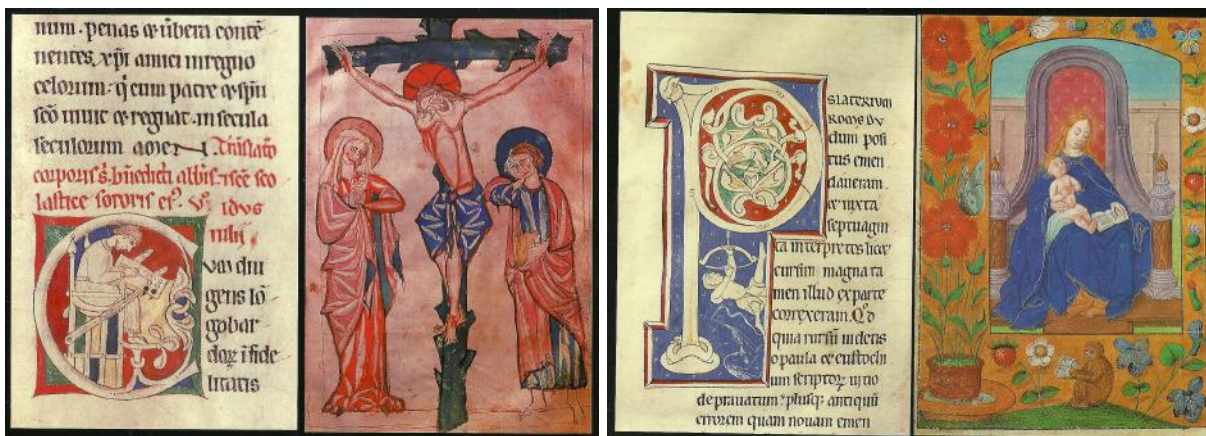 num. penas & ũbera contē
nentes, xp̄i amici in regno
celorum: q̄ cum patre & sp̄u
sc̄o uiuit & regnat. in secula
seculorum amen. Trāslatio
corporis s. bn̄dicti abb̄is. & sc̄e sco
lastice sororis ei'. V idus
iulii
Cum diu
gens lō
gobar
doꝝ ĩfide
litatis
PSALTERIUM
ROMĘ DU
dum posi
tus emen
daueram.
& iuxta
septuagin
ta interpretes licet
cursim magna ta
men illud ex parte
correxeram. Qd̄
quia rursū uidetis
o paula & eustochi
um scriptoꝝ uitio
deprauatum. plusq; antiquū
errorem quam nouam emen